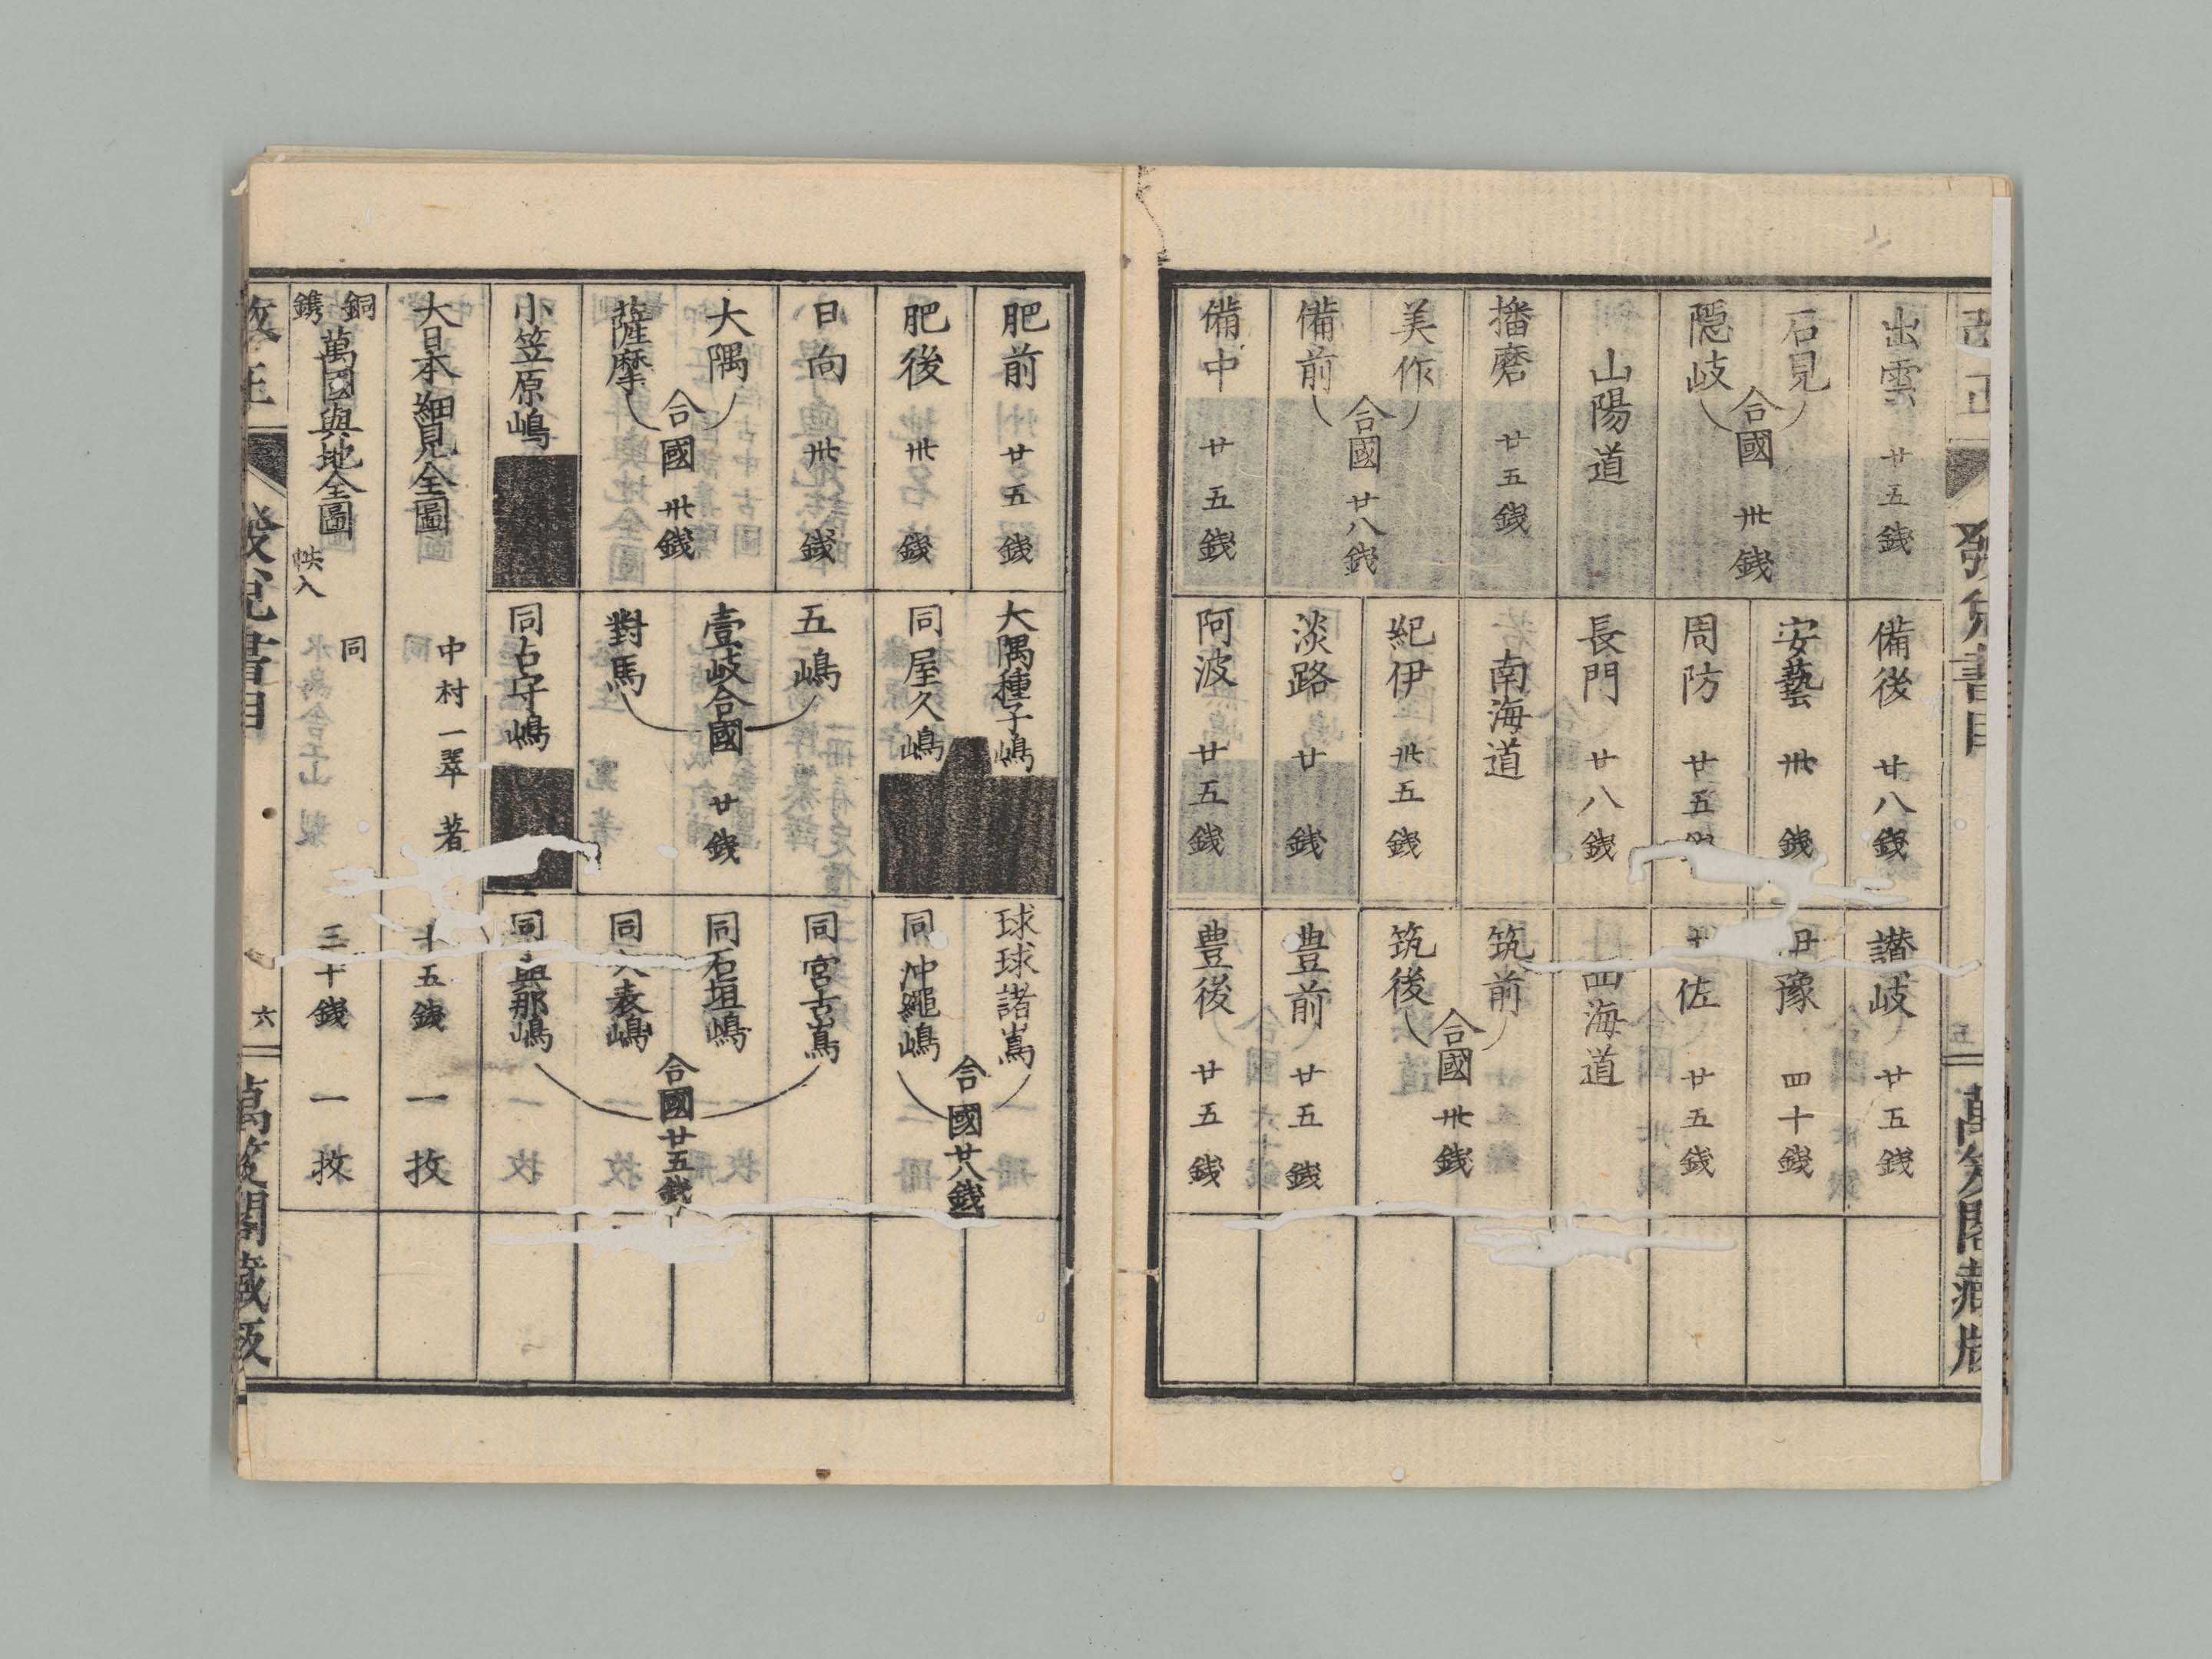 出雲 廿五銭
石見
隠岐
合國 卅銭
山陽道
播磨 廿五銭
美作
備前
合國 廿八銭
備中 廿五銭
備後 廿八銭
安藝 卅銭
周防 廿五
長門 廿八銭
南海道
紀伊 卅五銭
淡路 廿銭
阿波 廿五銭
讃岐 廿五銭
豫 四十銭
佐 廿五銭
西海道
筑前
筑後
合國 卅銭
豊前 廿五銭
豊後 廿五銭
五
肥前 廿五銭
肥後 卅銭
日向 卅銭
大隅
薩摩
合國 卅銭
小笠原嶋
大隅種子嶋
同屋久嶋
五嶋
壹岐
對馬
合國 廿銭
同占守嶋
球球諸嶌
同沖繩嶋
合國廿八銭
同宮古嶌
同石垣嶋
同入表嶋
同與那嶋
合國廿五銭
大日本細見全圖 中村一翠著 十五銭 一枚
銅鐫 萬國輿地全圖 帙入 同 三十銭 一枚
發兌書目
六
萬笈閣藏版